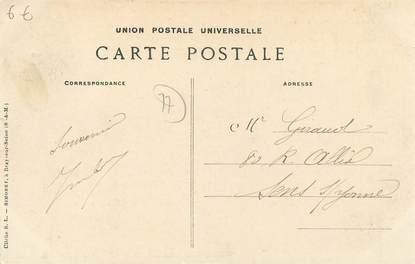 6€
UNION POSTALE UNIVERSELLE
CARTE POSTALE
CORRESPONDANCE
ADRESSE
77
Souvenir
Mr Giraud
80 R
Sens s/Yonne
Cliché R. L. — SIMONET, à Bray-sur-Seine (S.-&-M.)